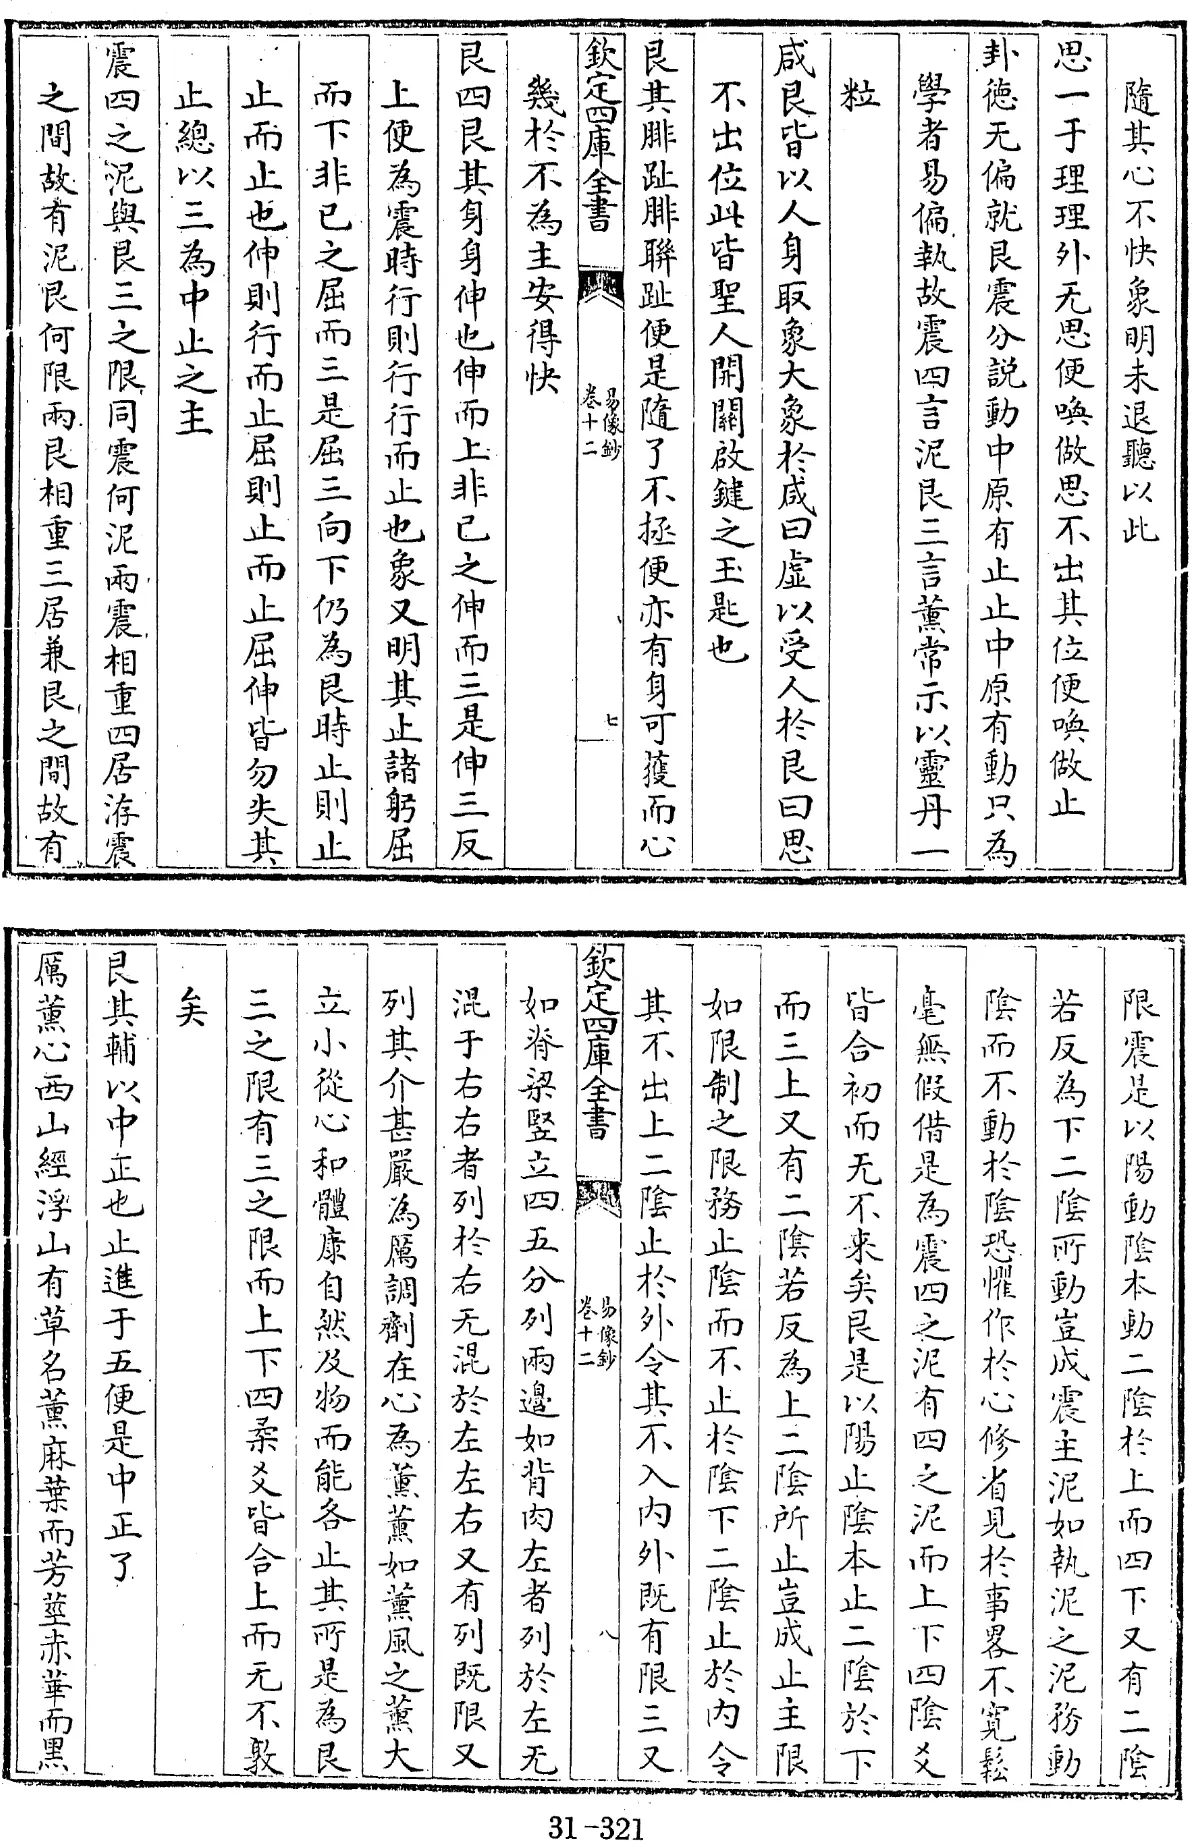 隨其心不快象明未退聽以此
思一于理理外无思便喚做思不出其位便喚做止
卦德无偏就艮震分説動中原有止止中原有動只為
學者易偏執故震四言泥艮三言薰常示以靈丹一
粒
咸艮皆以人身取象大象於咸曰虛以受人於艮曰思
不出位此皆聖人開關啟鍵之玉匙也
艮其腓趾腓聯趾便是隨了不拯便亦有身可獲而心
欽定四庫全書
易像鈔
卷十二
七
幾於不為主安得快
艮四艮其身身伸也伸而上非已之伸而三是伸三反
上便為震時行則行行而止也象又明其止諸躬屈
而下非已之屈而三是屈三向下仍為艮時止則止
止而止也伸則行而止屈則止而止屈伸皆勿失其
止總以三為中止之主
震四之泥與艮三之限同震何泥兩震相重四居洊震
之間故有泥艮何限兩艮相重三居兼艮之間故有
限震是以陽動陰本動二陰於上而四下又有二陰
若反為下二陰所動豈成震主泥如執泥之泥務動
陰而不動於陰恐懼作於心修省見於事畧不寬鬆
毫無假借是為震四之泥有四之泥而上下四陰爻
皆合初而无不来矣艮是以陽止陰本止二陰於下
而三上又有二陰若反為上二陰所止豈成止主限
如限制之限務止陰而不止於陰下二陰止於内令
其不出上二陰止於外令其不入内外既有限三又
欽定四庫全書
易像鈔
卷十二
八
如脊梁豎立四五分列兩邊如背肉左者列於左无
混于右右者列於右无混於左左右又有列既限又
列其介甚嚴為厲調劑在心為薰薰如薰風之薰大
立小從心和體康自然及物而能各止其所是為艮
三之限有三之限而上下四柔爻皆合上而无不敦
矣
艮其輔以中正也止進于五便是中正了
厲薰心西山經浮山有草名薰麻葉而芳莖赤華而黑
31-321